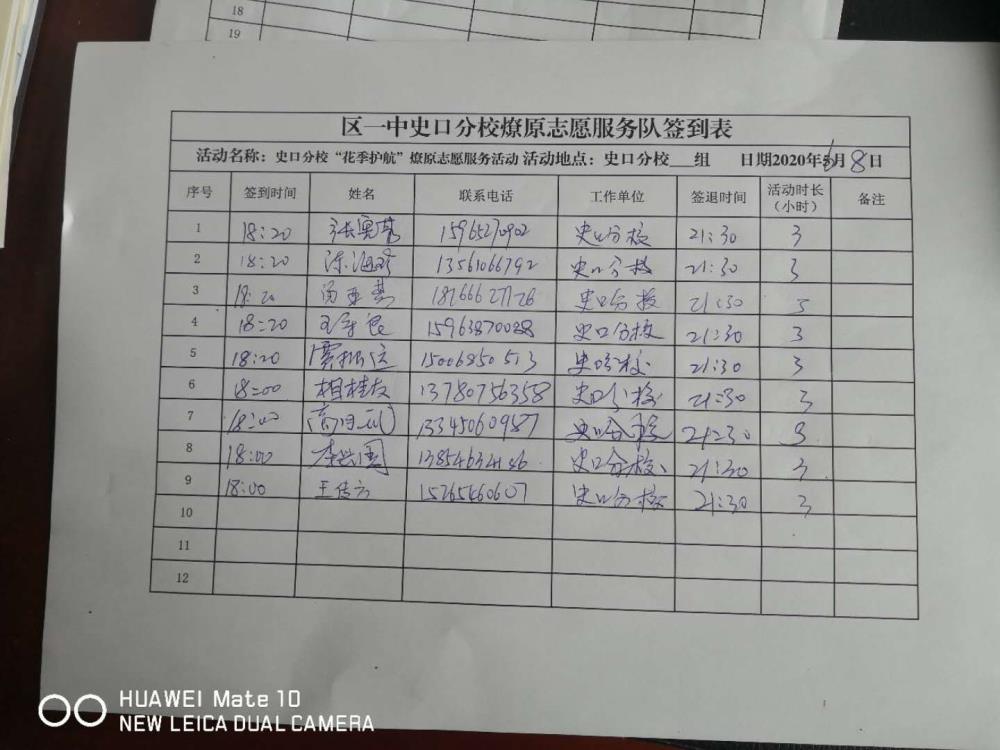 18
19
区一中史口分校燎原志愿服务队签到表
活动名称：史口分校“花季护航”燎原志愿服务活动 活动地点：史口分校__组 日期2020年6月8日
序号 签到时间 姓名 联系电话 工作单位 签退时间 活动时长（小时） 备注
1 18:20 15965270902 史口分校 21:30 3
2 18:20 13561066792 史口分校 21:30 3
3 18:20 18766627126 史口分校 21:30 3
4 18:20 15963870028 史口分校 21:30 3
5 18:20 15006850513 史口分校 21:30 3
6 18:00 相桂友 13780756358 史口分校 21:30 3
7 18:00 13345060987 史口分校 21:30 3
8 18:00 李兴国 13854634146 史口分校 21:30 3
9 18:00 王传方 15265460607 史口分校 21:30 3
10
11
12
HUAWEI Mate 10
NEW LEICA DUAL CAMERA